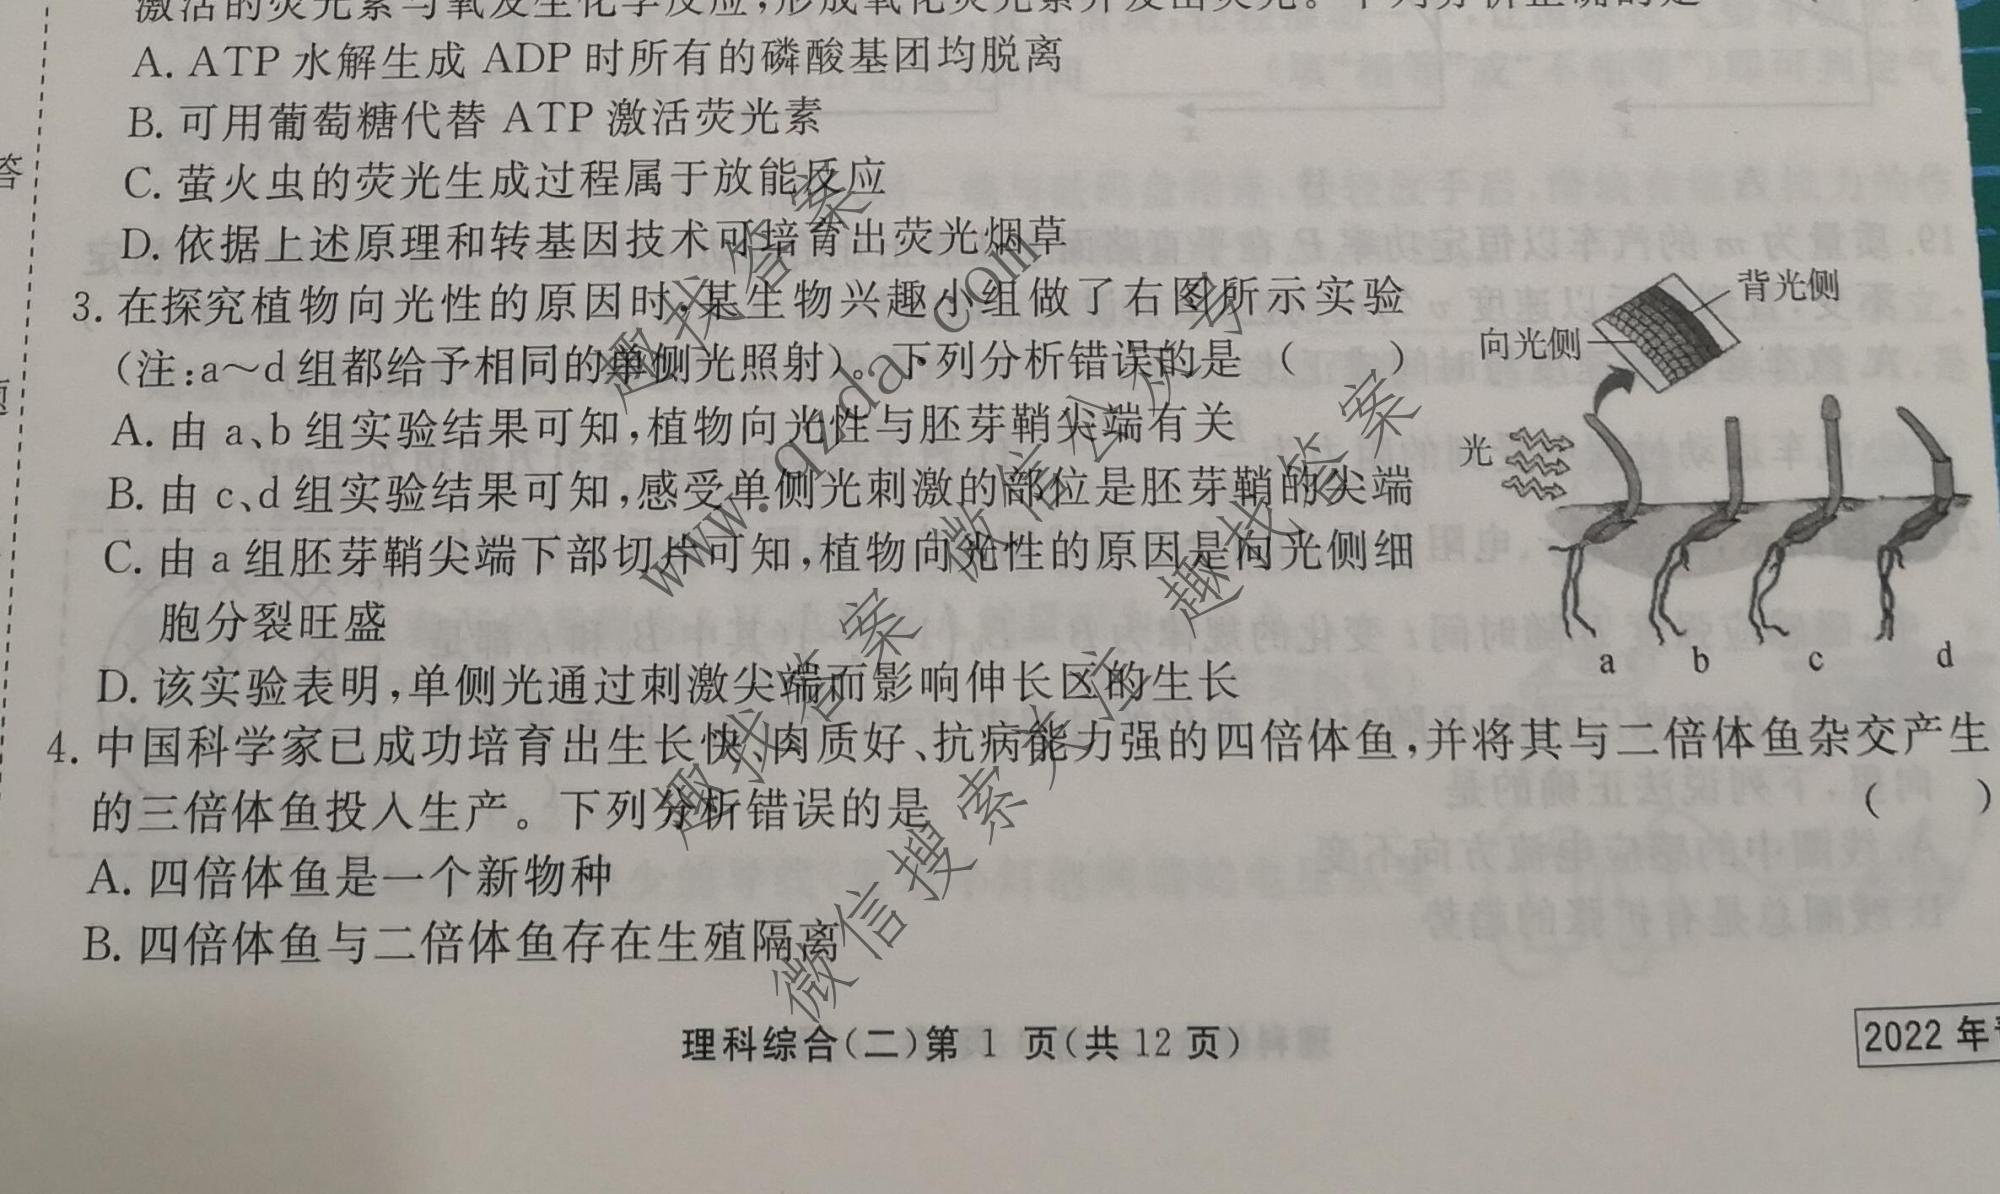 激活的荧光素与氧发生化学反应,形成氧化荧光素并发出荧光。下列分析正确的是
A. ATP 水解生成 ADP 时所有的磷酸基团均脱离
B. 可用葡萄糖代替 ATP 激活荧光素
C. 萤火虫的荧光生成过程属于放能反应
D. 依据上述原理和转基因技术可培育出荧光烟草
3. 在探究植物向光性的原因时,某生物兴趣小组做了右图所示实验
(注:a~d 组都给予相同的单侧光照射)。下列分析错误的是 ( )
A. 由 a、b 组实验结果可知,植物向光性与胚芽鞘尖端有关
B. 由 c、d 组实验结果可知,感受单侧光刺激的部位是胚芽鞘的尖端
C. 由 a 组胚芽鞘尖端下部切片可知,植物向光性的原因是向光侧细
胞分裂旺盛
D. 该实验表明,单侧光通过刺激尖端而影响伸长区的生长
背光侧
向光侧
光
a b c d
4. 中国科学家已成功培育出生长快、肉质好、抗病能力强的四倍体鱼,并将其与二倍体鱼杂交产生
的三倍体鱼投入生产。下列分析错误的是 ( )
A. 四倍体鱼是一个新物种
B. 四倍体鱼与二倍体鱼存在生殖隔离
理科综合(二)第 1 页(共 12 页)
2022 年
答
题
趣找答案
www.qzda.com
微信公众号
趣找答案
微信搜索关注
趣找答案